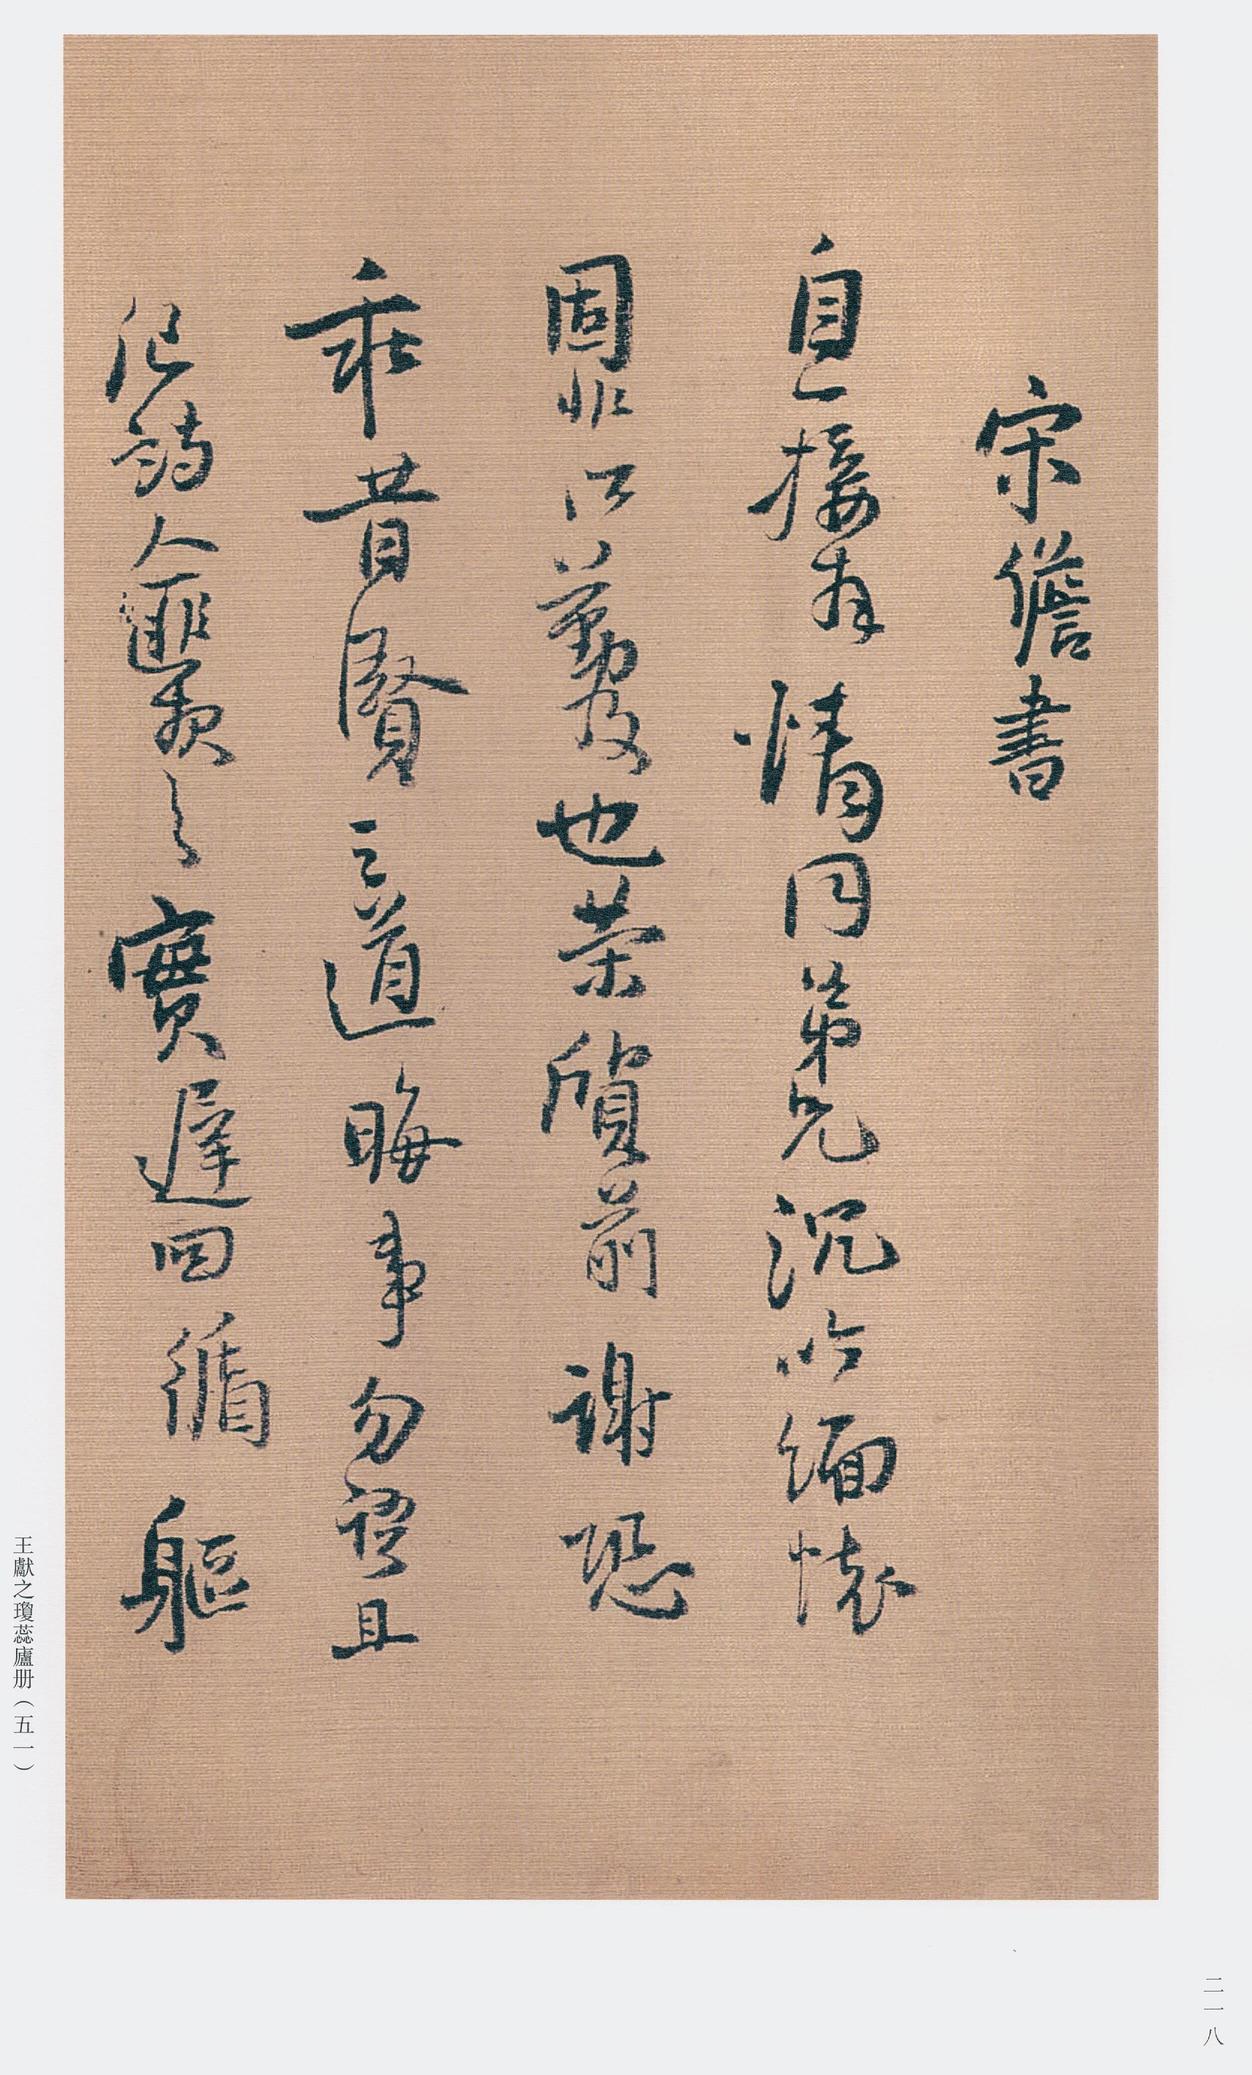 宋儋書
自一接有情同弟兄沉吟緬懷
固非所及也榮前謝恐
乖昔賢之道晦事勿語且
詩人匪報之實遲回循軀
王獻之瓊蕊廬册（五一）
二一八